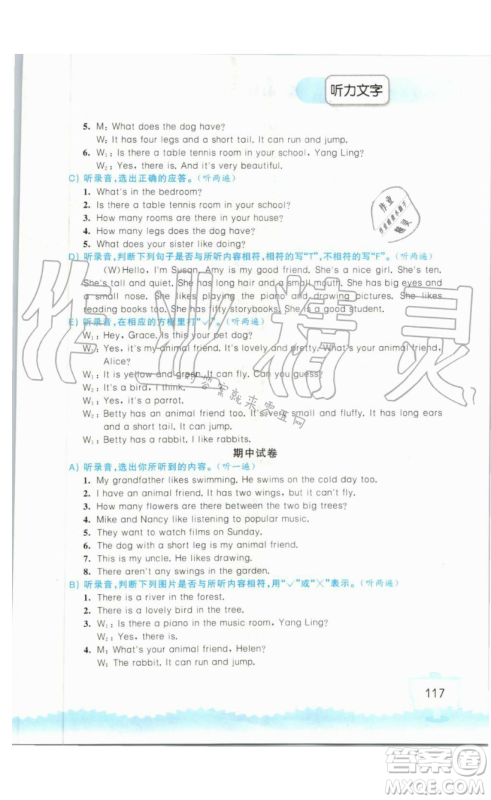 听力文字
5. M: What does the dog have?
W: It has four legs and a short tail. It can run and jump.
6. W₁: Is there a table tennis room in your school, Yang Ling?
W₂: Yes, there is. And it's very beautiful.
C) 听录音,选出正确的应答。(听两遍)
1. What's in the bedroom?
2. Is there a table tennis room in your school?
3. How many rooms are there in your house?
4. How many legs do you have?
5. What does your sister like doing?
D) 听录音,判断下列句子是否与所听内容相符,相符的写"T",不相符的写"F"。(听两遍)
(W)Hello, I'm Susan. Amy is my good friend. She's a nice girl. She's ten.
She's tall and quiet. She has long hair and a small mouth. She has big eyes and
a small nose. She likes playing the piano and dancing very much. She likes
reading books too. She has fifty storybooks. She is a good student.
E) 听录音,在相应的方框里打"✓"。(听两遍)
W₁: Hey, Grace. Is this your pet dog?
W₂: Yes, it is. It's lovely and pretty. What's your animal friend,
Alice?
W₁: It is yellow and green. It can fly. Can you guess?
W₂: It's a bird, I think.
W₁: Yes, it's a parrot.
W₂: Betty has an animal friend too. It's very small and fluffy. It has long ears
and a short tail. It can run and jump.
W₁: Betty has a rabbit. I like rabbits.
期中试卷
A) 听录音,选出你所听到的内容。(听一遍)
1. My grandfather likes swimming. He swims on the cold day too.
2. I have an animal friend. It has two wings, but it can't fly.
3. How many flowers are there between the two big trees?
4. Mike and Nancy like listening to popular music.
5. They want to watch films on Sunday.
6. The dog with a short leg is my animal friend.
7. My sister doesn't like drawing.
8. There aren't any swings in the garden.
B) 听录音,判断下列图片是否与所听内容相符,用"✓"或"×"表示。(听两遍)
1. There is a river in the forest.
2. There is a lovely bird in the tree.
3. W₁: Is there a piano in the music room, Yang Ling?
W₂: Yes, there is.
4. M: What's your animal friend, Helen?
W: The rabbit. It can run and jump.
117
作业精灵
答案圈
MXQE.COM